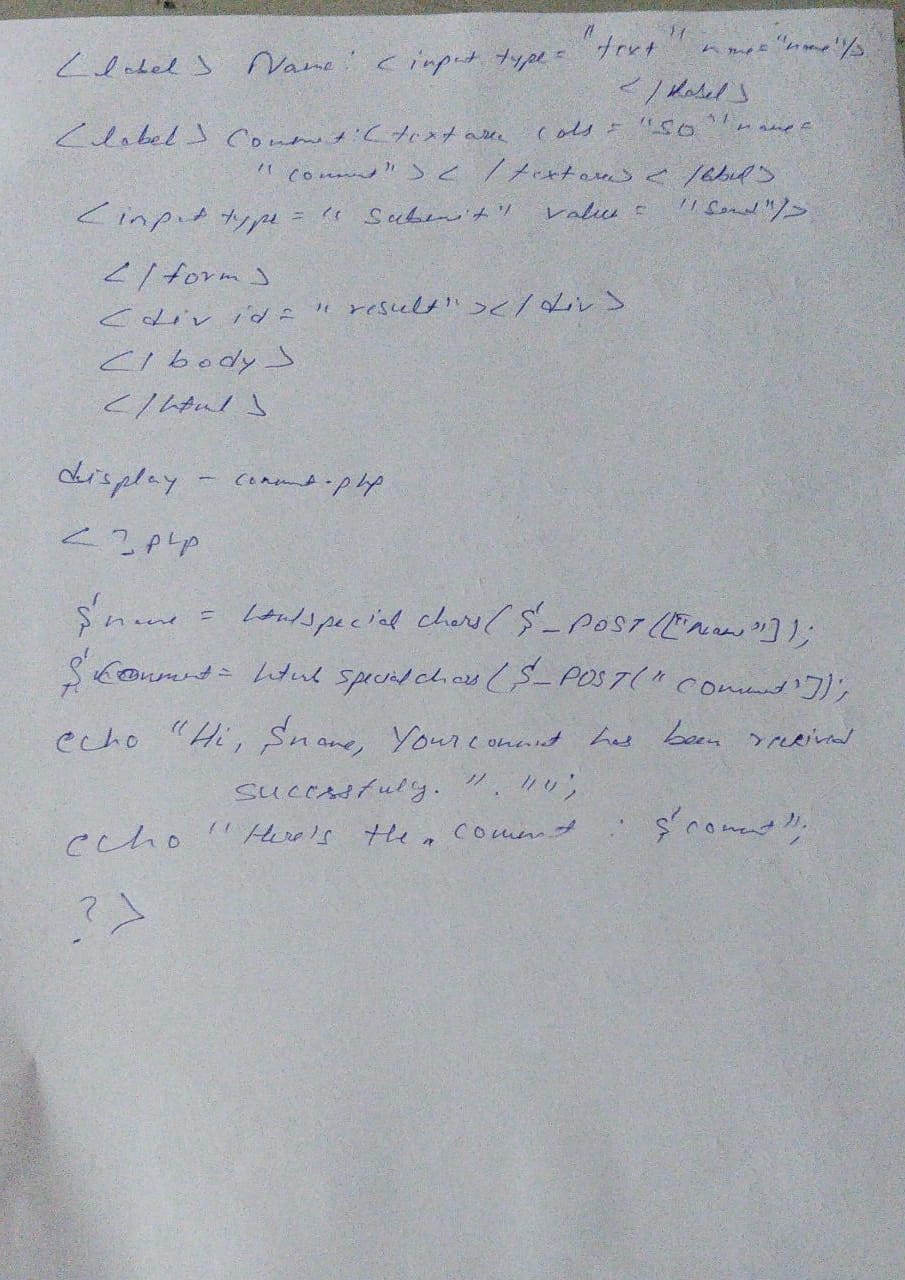 <label> Name: <input type = "text" name = "name"/>
</label>
<label> Comment: <textarea cols = "50" name =
"comment"> < /textarea> < /label>
<input type = "submit" value = "Send"/>
</form>
<div id = "result"></div>
</body>
</html>
display - comment.php
<?php
$name = htmlspecialchars($_POST(["name"]);
$comment = htmlspecialchars($_POST("comment"]);
echo "Hi, $name, Your comment has been received
successfully. " . "";
echo "Here's the comment : $comment";
?>